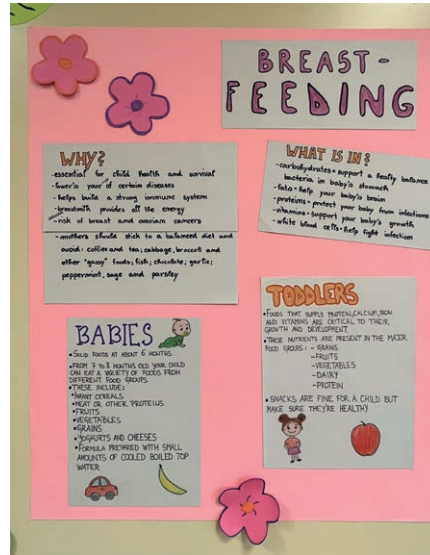 BREAST-
FEEDING
WHY?
-essential for child health and survival
-lowers your of certain diseases
- helps build a strong immune system
- breastmilk provides all the energy
- risk of breast and ovarian cancers
- mothers should stick to a balanced diet and
avoid: coffee and tea; cabbage, broccoli and
other "gassy" foods; fish; chocolate; garlic;
peppermint, sage and parsley
WHAT IS IN?
-carbohydrates - support a healty balance
bacteria in baby's stomach
-fats - help your baby's brain
-proteins - protect your baby from infections
-vitamins - support your baby's growth
- white blood cells - help fight infection
BABIES
•SOLID FOODS AT ABOUT 6 MONTHS.
•FROM 7 TO 8 MONTHS OLD YOUR CHILD
CAN EAT A VARIETY OF FOODS FROM
DIFFERENT FOOD GROUPS.
•THESE INCLUDE:
•INFANT CEREALS
•MEAT OR OTHER PROTEINS
•FRUITS
•VEGETABLES
•GRAINS
•YOGHURTS AND CHEESES
•FORMULA PREPARED WITH SMALL
AMOUNTS OF COOLED BOILED TOP
WATER
TODDLERS
•FOODS THAT SUPPLY PROTEIN, CALCIUM, IRON
AND VITAMINS ARE CRITICAL TO THEIR
GROWTH AND DEVELOPMENT.
•THESE NUTRIENTS ARE PRESENT IN THE MAJOR
FOOD GROUPS: - GRAINS
-FRUITS
-VEGETABLES
-DAIRY
-PROTEIN
•SNACKS ARE FINE FOR A CHILD BUT
MAKE SURE THEY'RE HEALTHY